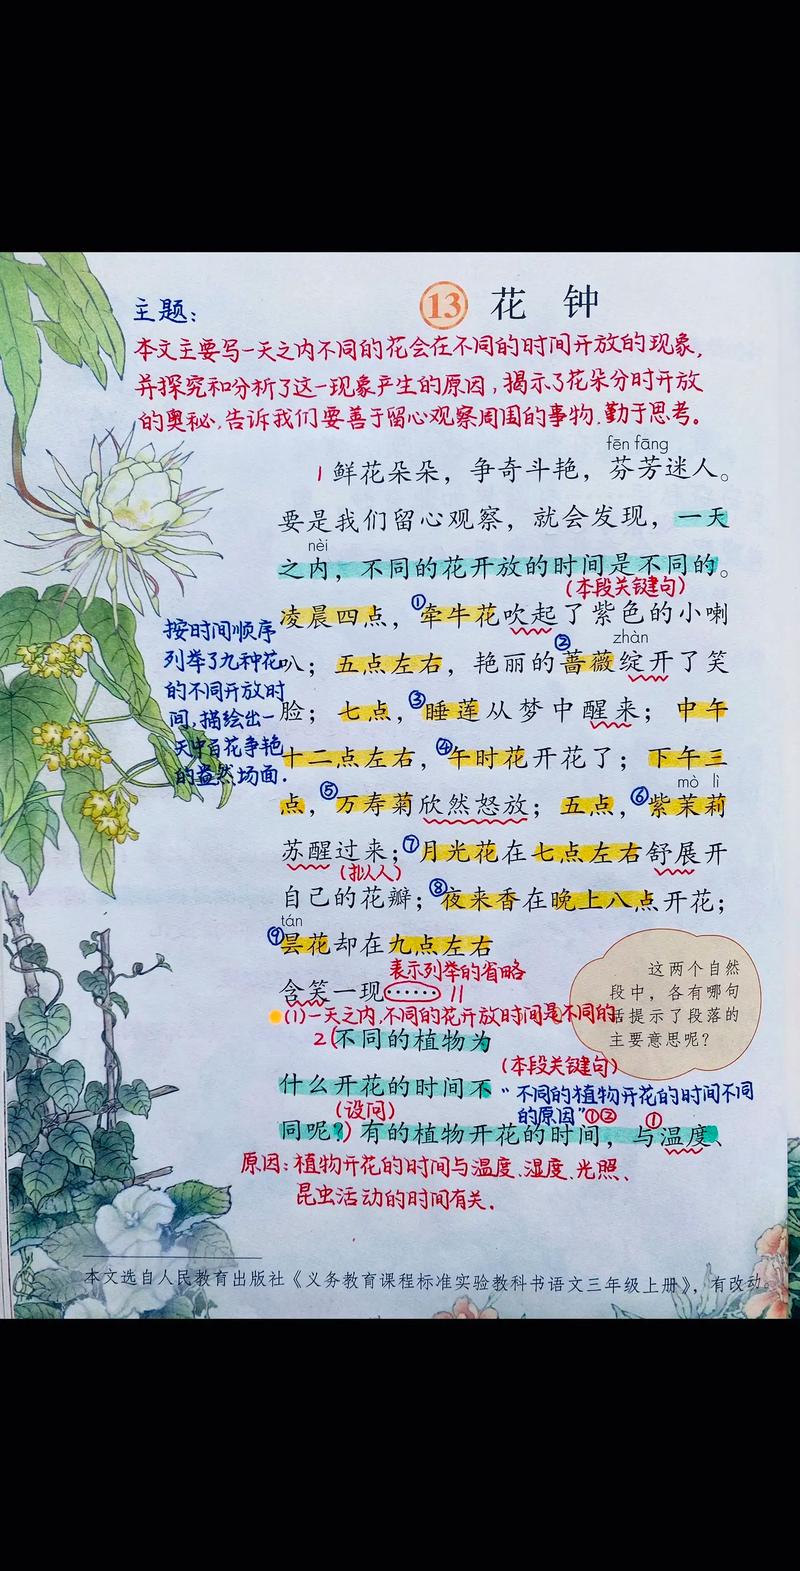 13 花钟
主题:
本文主要写一天之内不同的花会在不同的时间开放的现象,
并探究和分析了这一现象产生的原因,揭示了花朵分时开放
的奥秘,告诉我们要善于留心观察周围的事物.勤于思考。
fēn fāng
1 鲜花朵朵,争奇斗艳,芬芳迷人。
要是我们留心观察,就会发现,一天
nèi
之内,不同的花开放的时间是不同的。
(本段关键句)
凌晨四点,①牵牛花吹起了紫色的小喇
②
zhàn
叭;五点左右,艳丽的蔷薇绽开了笑
脸;七点,③睡莲从梦中醒来;中午
十二点左右,④午时花开花了;下午三
mò lì
点,⑤万寿菊欣然怒放;五点,⑥紫茉莉
苏醒过来;⑦月光花在七点左右舒展开
(拟人)
自己的花瓣;⑧夜来香在晚上八点开花;
tán
⑨昙花却在九点左右
表示列举的省略
含笑一现……||
按时间顺序
列举了九种花
的不同开放时
间,描绘出一
天中百花争艳
的盎然场面.
(1)一天之内,不同的花开放时间是不同的
这两个自然
段中,各有哪句
话提示了段落的
主要意思呢?
2(不同的植物为
(本段关键句)
什么开花的时间不
"不同的植物开花的时间不同
的原因"①②
(设问)
①
同呢?)有的植物开花的时间,与温度、
原因:植物开花的时间与温度、湿度、光照、
昆虫活动的时间有关.
本文选自人民教育出版社《义务教育课程标准实验教科书语文三年级上册》,有改动。